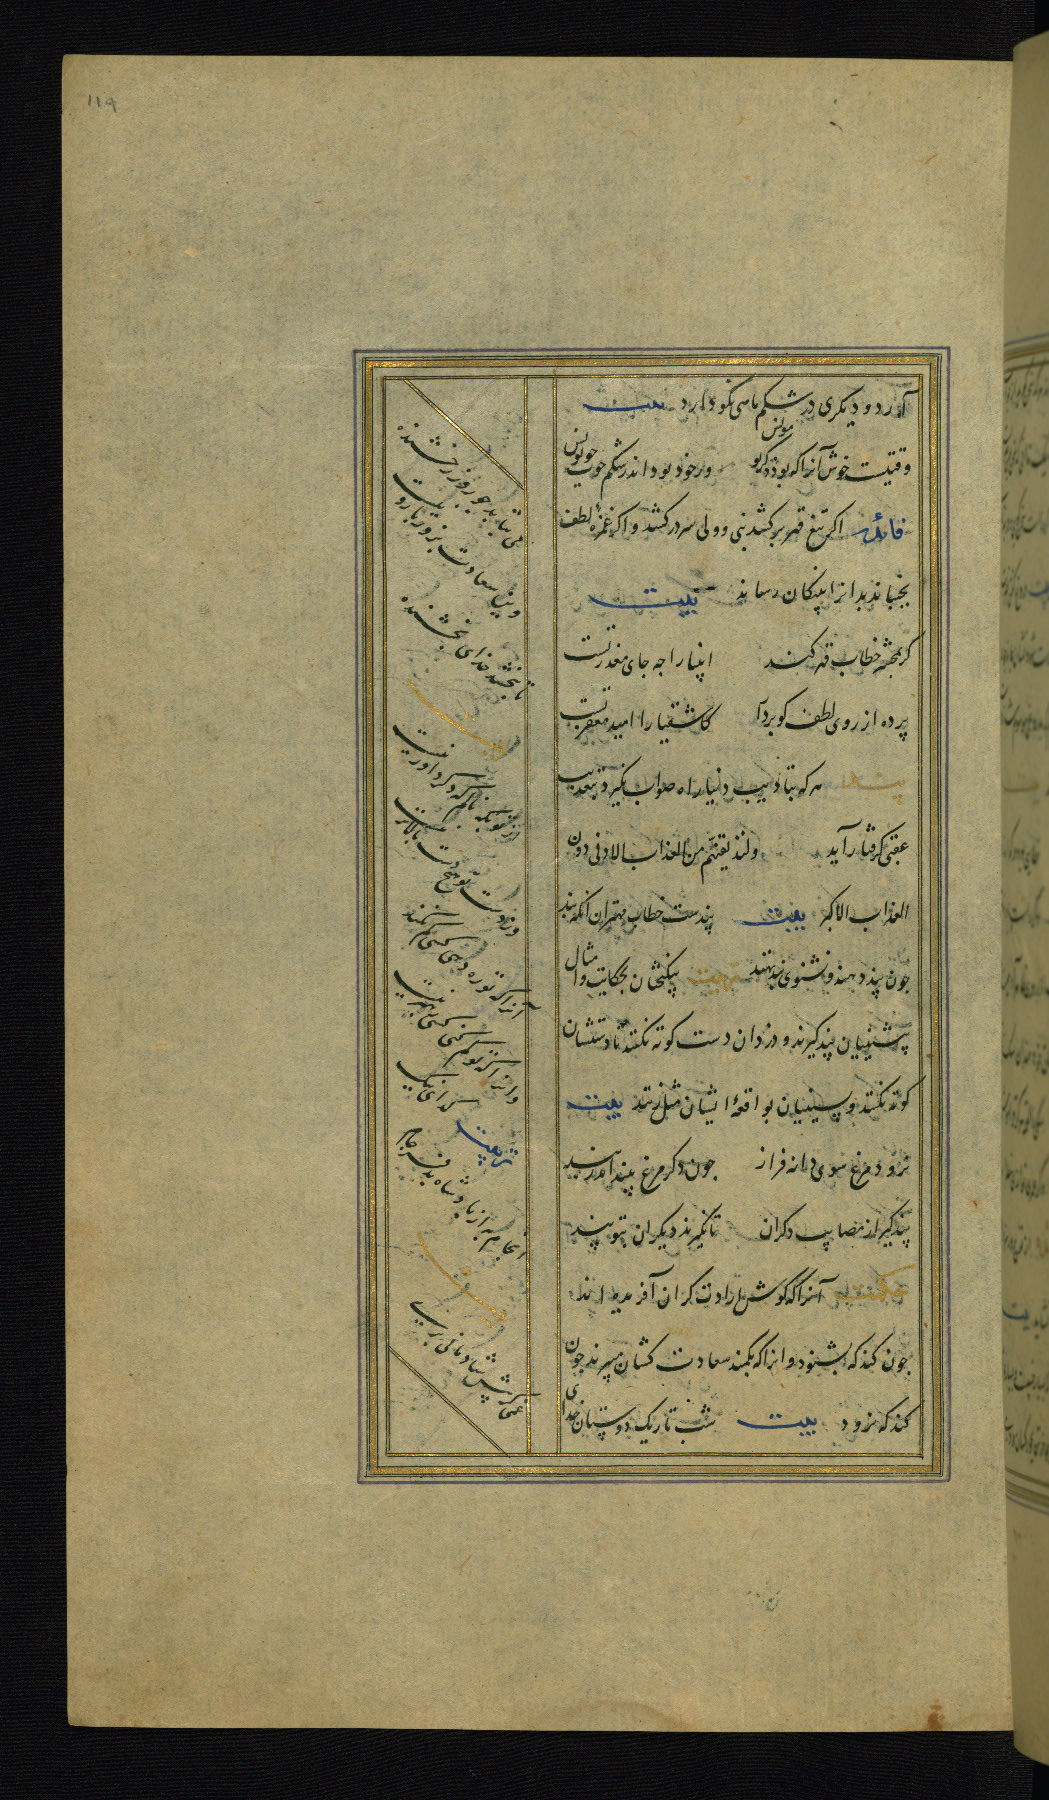 ۱۱۹
آورد و دیکری در شکم ماهی نکو دارد بیت
وقتیست خوش آنرا که بود ذکر تو مونس ور خود بود اندر شکم حوت چو یونس
فائده اکر تیغ قهر برکشد نبی و ولی سر درکشد و اکر غمزه لطف
بجنباند بدانرا به نیکان رساند بیت
کر بمحشر خطاب قهر کند انبیا را چه جای معذرتست
پرده از روی لطف کو بردار کاشقیا را امید مغفرتست
پند هر که بتأدیب دنیا راه صواب نکیرد بتعذیب
عقبی کرفتار آید ولنذیقنهم من العذاب الادنی دون
العذاب الاکبر بیت پندست خطاب مهتران آنکه بند
چون پند دهند و نشنوی بند نهند نیکبختان بحکایت و امثال
پیشینیان پند کیرند و دزدان دست کوته نکنند تا دستشان
کوته نکنند و پسینیان بواقعهٔ ایشان مثل زنند بیت
نرود مرغ سوی دانه فراز چون دکر مرغ بیند اندر بند
پند کیر از مصایب دکران تا نکیرند دیکران بتو پند
حکمت آنرا که کوش ارادت کران آفریده اند
چون کند که بشنود و آنرا که بکمند سعادت کشان میبرند چون
کند که نرود بیت شب تاریک دوستان خدای
می بتابد چو روز رخشنده
وین سعادت بزور بازو نیست
تا نبخشد خدای بخشنده
از تو بکه نالم که دکر داور نیست
وز دست تو هیچ دست بالاتر نیست
آنرا که تو ره دهی کسی کم نکند
وانرا که تو کم کنی کسی رهبر نیست
کدای نیک
انجام به از پادشاه بد فرجام
غمی کز پیش شادمانی بری